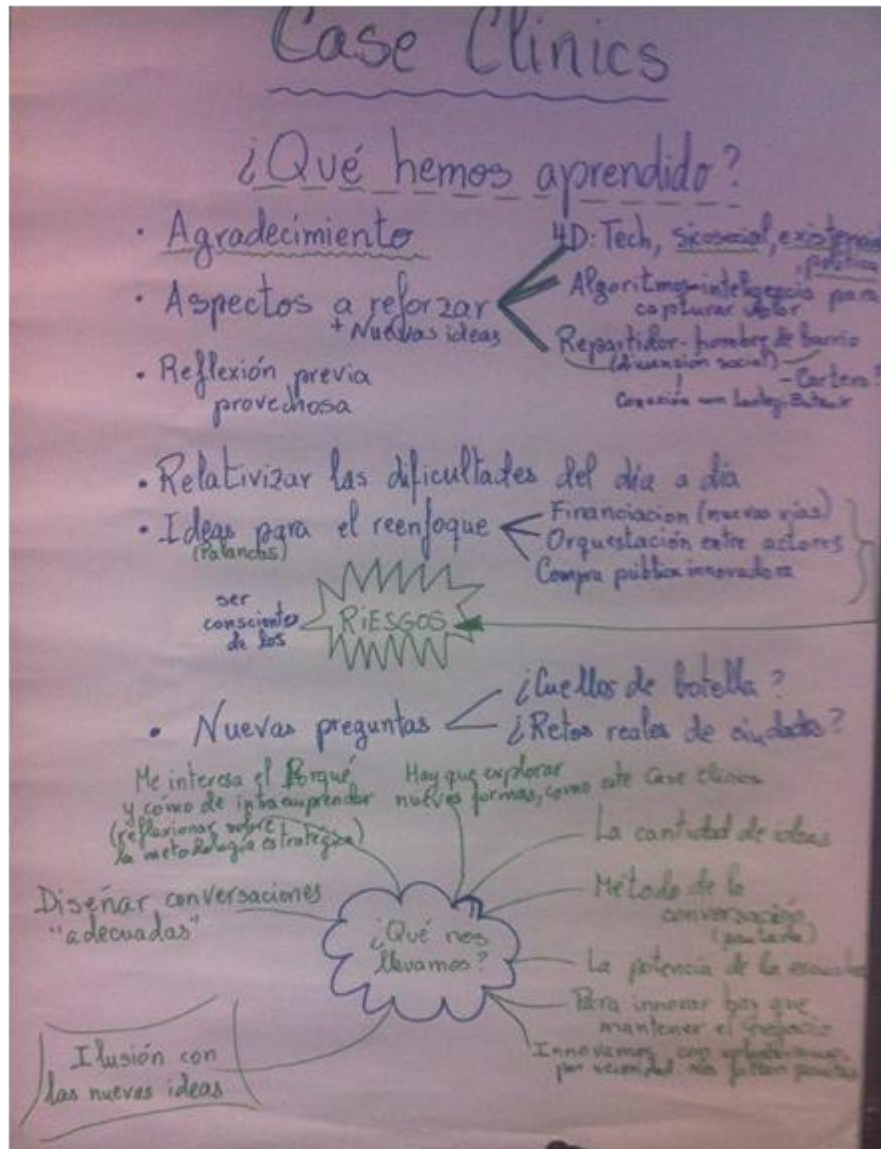 Case Clinics
¿Qué hemos aprendido?
• Agradecimiento
• Aspectos a reforzar
+ Nuevas ideas
4D: Tech, sicosocial, existencial
política
Algoritmos-inteligencia para
capturar valor
Repartidor-hombre de barrio
(dimensión social)
- Cartero?
Conexión con
• Reflexión previa
provechosa
• Relativizar las dificultades del día a día
• Ideas para el reenfoque
(Palancas)
Financiacion (nuevas vías)
Orquestación entre actores
Compra pública innovadora
ser
consciente
de los
RIESGOS
• Nuevas preguntas
¿Cuellos de botella?
¿Retos reales de ciudades?
Me interesa el Porqué
y cómo de intraemprender
(reflexionar sobre
la metodología estratégica)
Hay que explorar
nuevas formas, como este Case Clinics
La cantidad de ideas
Método de la
conversación
(pautada)
Diseñar conversaciones
"adecuadas"
¿Qué nos
llevamos?
La potencia de la escucha
Para innovar hay que
mantener el negocio
Innovamos con
por necesidad
Ilusión con
las nuevas ideas